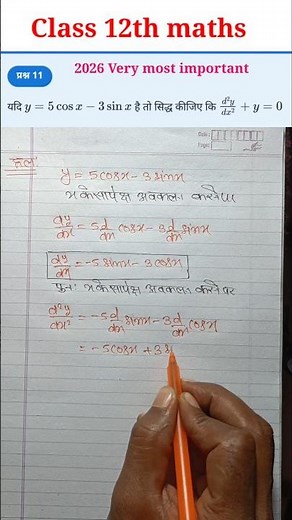 Class 12th maths
2026 Very most important
प्रश्न 11
यदि y = 5 cos x − 3 sin x है तो सिद्ध कीजिए कि d²y/dx² + y = 0
हल
y = 5cosx − 3sinx
x के सापेक्ष अवकलन करने पर
dy/dx = 5 d/dx cosx − 3 d/dx sinx
dy/dx = −5 sinx − 3cosx
पुनः x के सापेक्ष अवकलन करने पर
d²y/dx² = −5 d/dx sinx − 3 d/dx cosx
= −5cosx + 3